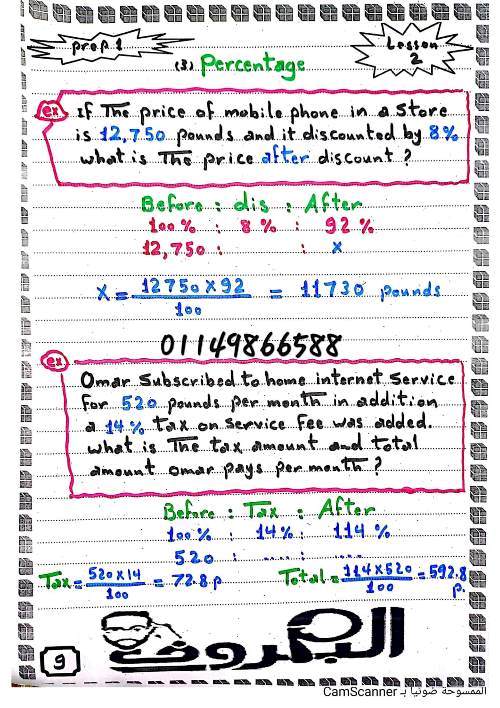 prep 1
Lesson
2
(3) Percentage
ex
If The price of mobile phone in a store
is 12,750 pounds and it discounted by 8%
what is The price after discount ?
Before : dis : After
100 % : 8 % : 92 %
12,750 : : x
X = 12750 x 92 / 100 = 11730 pounds
01149866588
ex
Omar Subscribed to home internet Service
For 520 pounds per month in addition
a 14% tax on Service Fee was added.
what is The tax amount and total
amount omar pays per month ?
Before : Tax : After
100 % : 14 % : 114 %
520 : ..... : ....
Tax = 520 x 14 / 100 = 72.8 p. Total = 114 x 520 / 100 = 592.8 p.
9
الممسوحة ضوئيا بـ CamScanner